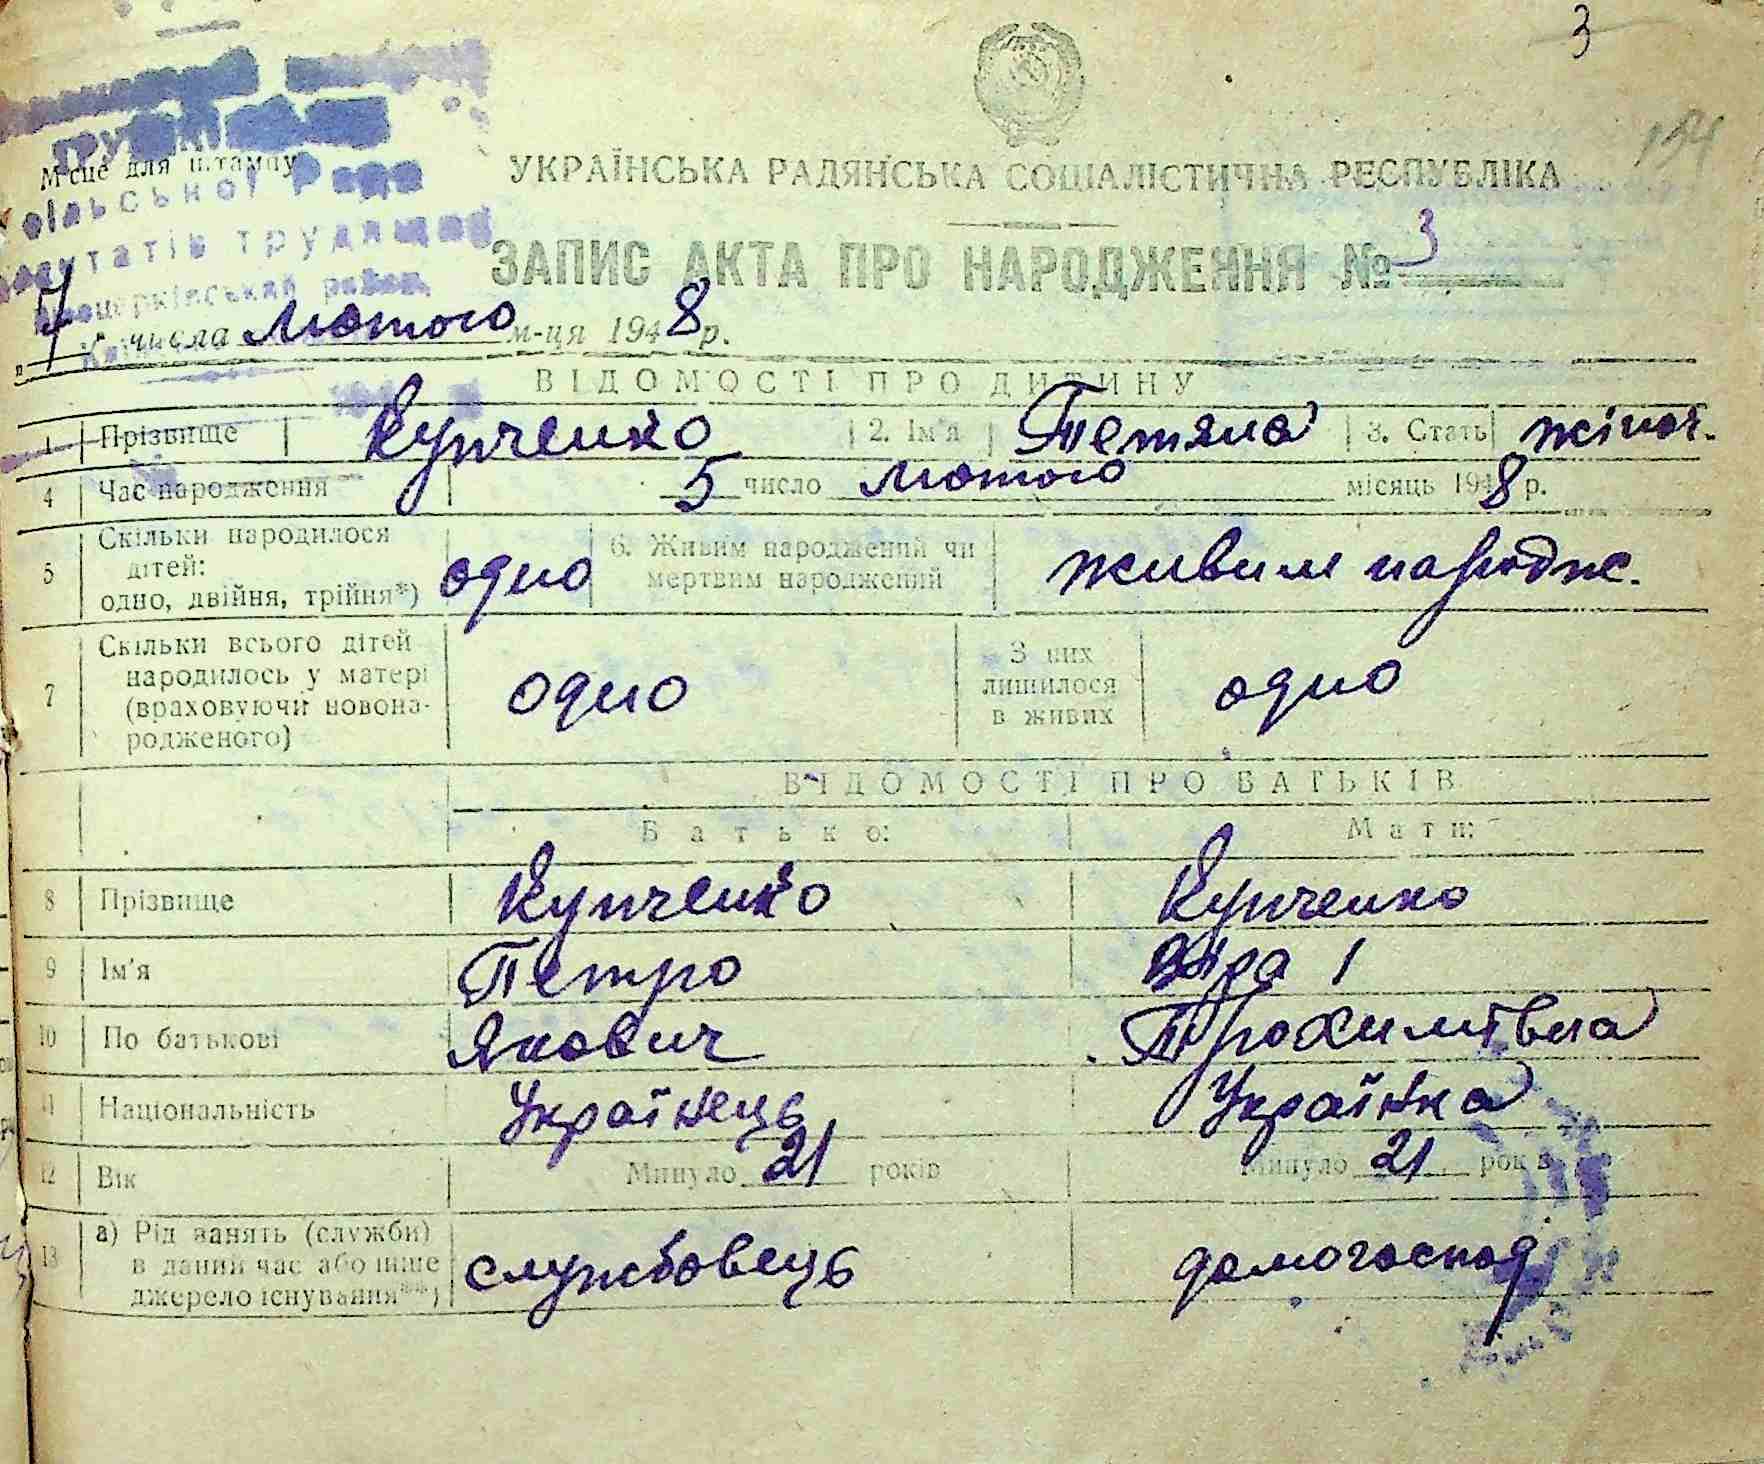 3
Місце для штампу
сільської Ради
депутатів трудящих
УКРАЇНСЬКА РАДЯНСЬКА СОЦІАЛІСТИЧНА РЕСПУБЛІКА
ЗАПИС АКТА ПРО НАРОДЖЕННЯ № 3
„7“ числа Лютого м-ця 1948 р.
ВІДОМОСТІ ПРО ДИТИНУ
1 Прізвище Купченко 2. Ім'я Тетяна 3. Стать жіноч.
4 Час народження 5 число Лютого місяць 1948 р.
5 Скільки народилося дітей: одно, двійня, трійня*) одно 6. Живим народжений чи мертвим народжений живим народж.
7 Скільки всього дітей народилось у матері (враховуючи новонародженого) одно З них лишилося в живих одно
ВІДОМОСТІ ПРО БАТЬКІВ
Батько: Мати:
8 Прізвище Купченко Купченко
9 Ім'я Петро
10 По батькові Якович Трохимівна
11 Національність Українець Українка
12 Вік Минуло 21 років Минуло 21 років
13 а) Рід занять (служби) в даний час або інше джерело існування**) службовець домогоспод